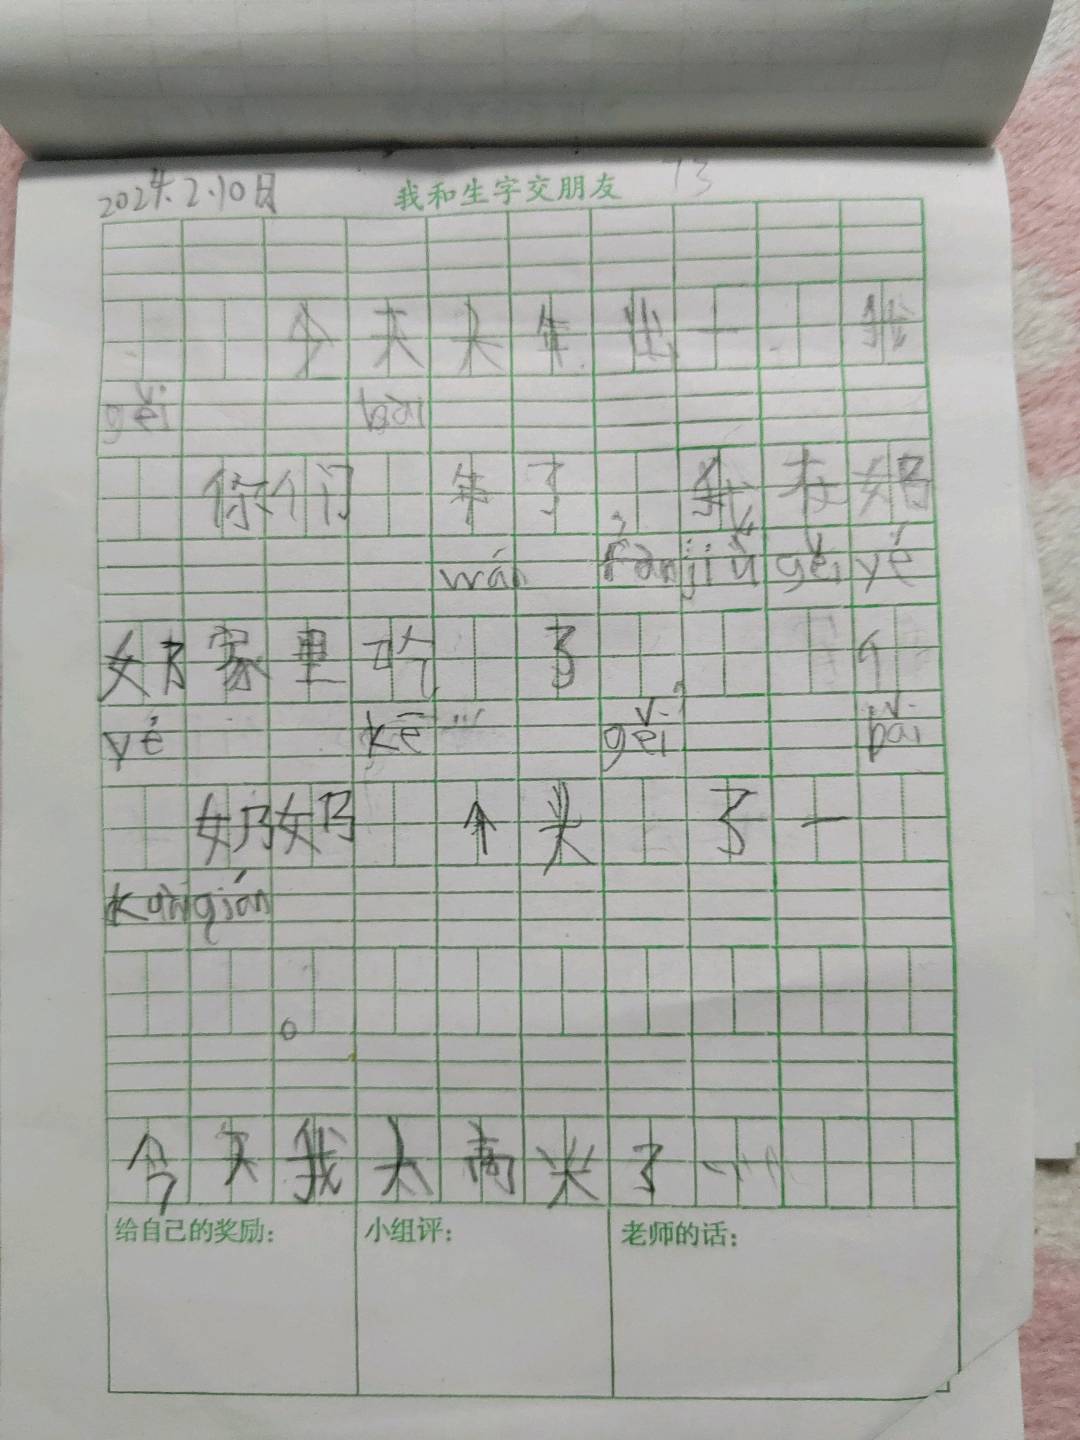 2024.2.10日 我和生字交朋友 73
今天大年出一 我
gěi bài
你们 年了 我在奶
wán fàn jiù gěi yé
奶家里吃 了 个
yé kē gěi bài
奶奶 个头 了一
kuài qián
。
今天我太高兴了
给自己的奖励： 小组评： 老师的话：